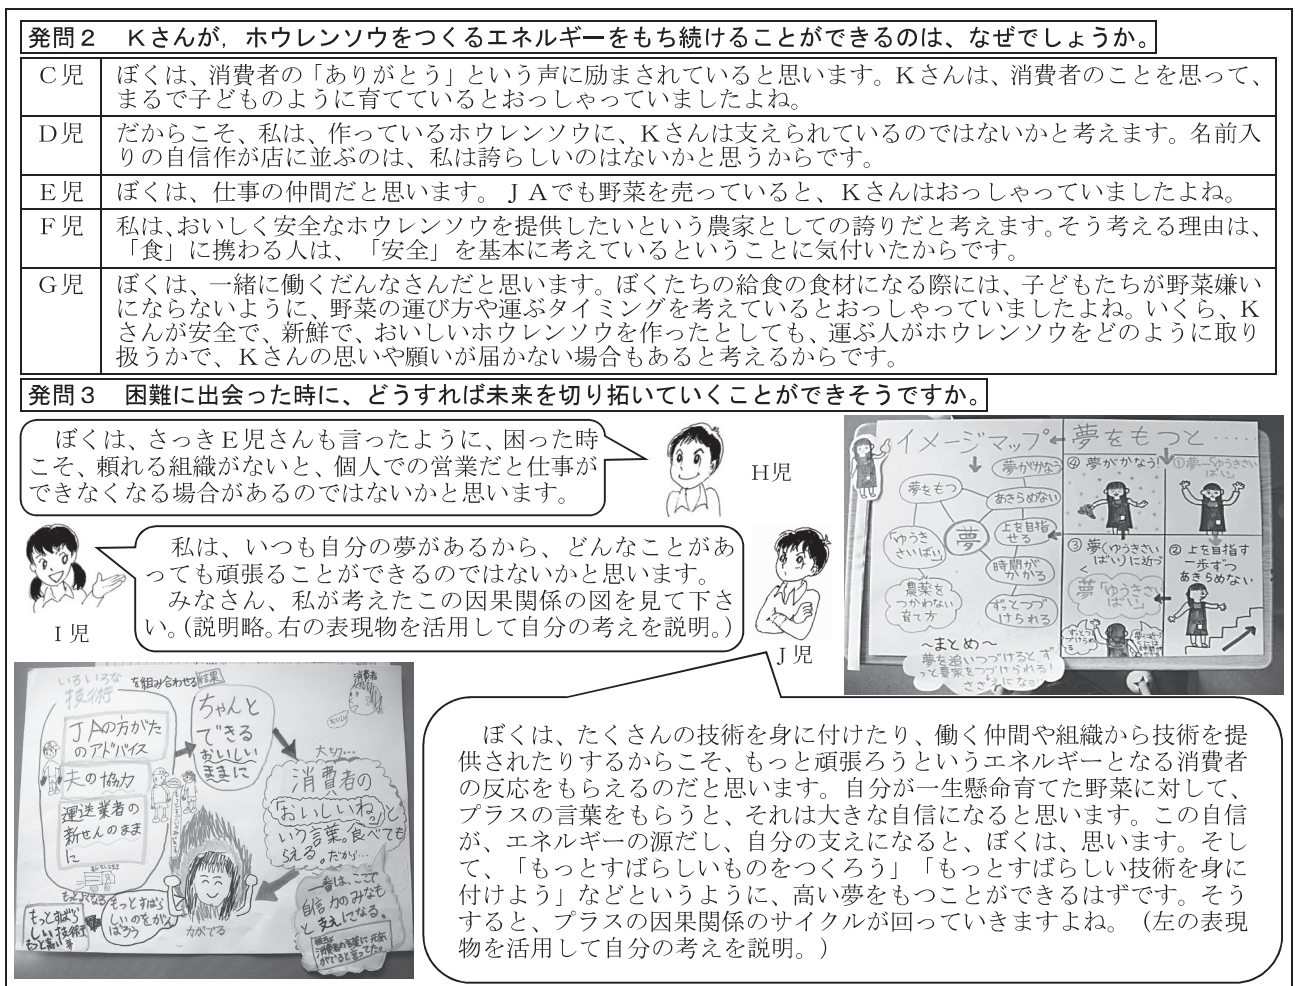 発問２　Ｋさんが，ホウレンソウをつくるエネルギーをもち続けることができるのは、なぜでしょうか。
Ｃ児
ぼくは、消費者の「ありがとう」という声に励まされていると思います。Ｋさんは、消費者のことを思って、
まるで子どものように育てているとおっしゃっていましたよね。
Ｄ児
だからこそ、私は、作っているホウレンソウに、Ｋさんは支えられているのではないかと考えます。名前入
りの自信作が店に並ぶのは、私は誇らしいのはないかと思うからです。
Ｅ児
ぼくは、仕事の仲間だと思います。ＪＡでも野菜を売っていると、Ｋさんはおっしゃっていましたよね。
Ｆ児
私は、おいしく安全なホウレンソウを提供したいという農家としての誇りだと考えます。そう考える理由は、
「食」に携わる人は、「安全」を基本に考えているということに気付いたからです。
Ｇ児
ぼくは、一緒に働くだんなさんだと思います。ぼくたちの給食の食材になる際には、子どもたちが野菜嫌い
にならないように、野菜の運び方や運ぶタイミングを考えているとおっしゃっていましたよね。いくら、Ｋ
さんが安全で、新鮮で、おいしいホウレンソウを作ったとしても、運ぶ人がホウレンソウをどのように取り
扱うかで、Ｋさんの思いや願いが届かない場合もあると考えるからです。
発問３　困難に出会った時に、どうすれば未来を切り拓いていくことができそうですか。
ぼくは、さっきＥ児さんも言ったように、困った時
こそ、頼れる組織がないと、個人での営業だと仕事が
できなくなる場合があるのではないかと思います。
Ｈ児
私は、いつも自分の夢があるから、どんなことがあ
っても頑張ることができるのではないかと思います。
みなさん、私が考えたこの因果関係の図を見て下さ
い。（説明略。右の表現物を活用して自分の考えを説明。）
Ｉ児
Ｊ児
イメージマップ
夢をもつと……
夢がかなう
夢をもつ
あきらめない
夢
上を目指
せる
「ゆうき
さいばい」
時間が
かかる
農薬を
つかわない
育て方
ずっとつづ
けられる
～まとめ～
夢を追いつづけると、ず
っと農家をつづけられる！
④ 夢がかなう！
①夢→「ゆうきさい
ばい」
③ 夢（ゆうきさい
ばい）に近づ
く
② 上を目指す
一歩ずつ
あきらめない
夢「ゆうきさい
ばい」
いろいろな
技術
を組み合わせる結果
ＪＡの方がた
のアドバイス
夫の協力
運送業者の
新せんのまま
に
ちゃんと
できる
おいしい
ままに
消費者
大切…
消費者の
「おいしいね」と
いう言葉。食べても
らえる。だから…
一番は、ここで
自信・力のみなも
と支えになる。
力がでる
もっとすばら
しいのをがん
ばろう
もっとすばら
しい技術
ぼくは、たくさんの技術を身に付けたり、働く仲間や組織から技術を提
供されたりするからこそ、もっと頑張ろうというエネルギーとなる消費者
の反応をもらえるのだと思います。自分が一生懸命育てた野菜に対して、
プラスの言葉をもらうと、それは大きな自信になると思います。この自信
が、エネルギーの源だし、自分の支えになると、ぼくは、思います。そし
て、「もっとすばらしいものをつくろう」「もっとすばらしい技術を身に
付けよう」などというように、高い夢をもつことができるはずです。そう
すると、プラスの因果関係のサイクルが回っていきますよね。（左の表現
物を活用して自分の考えを説明。）